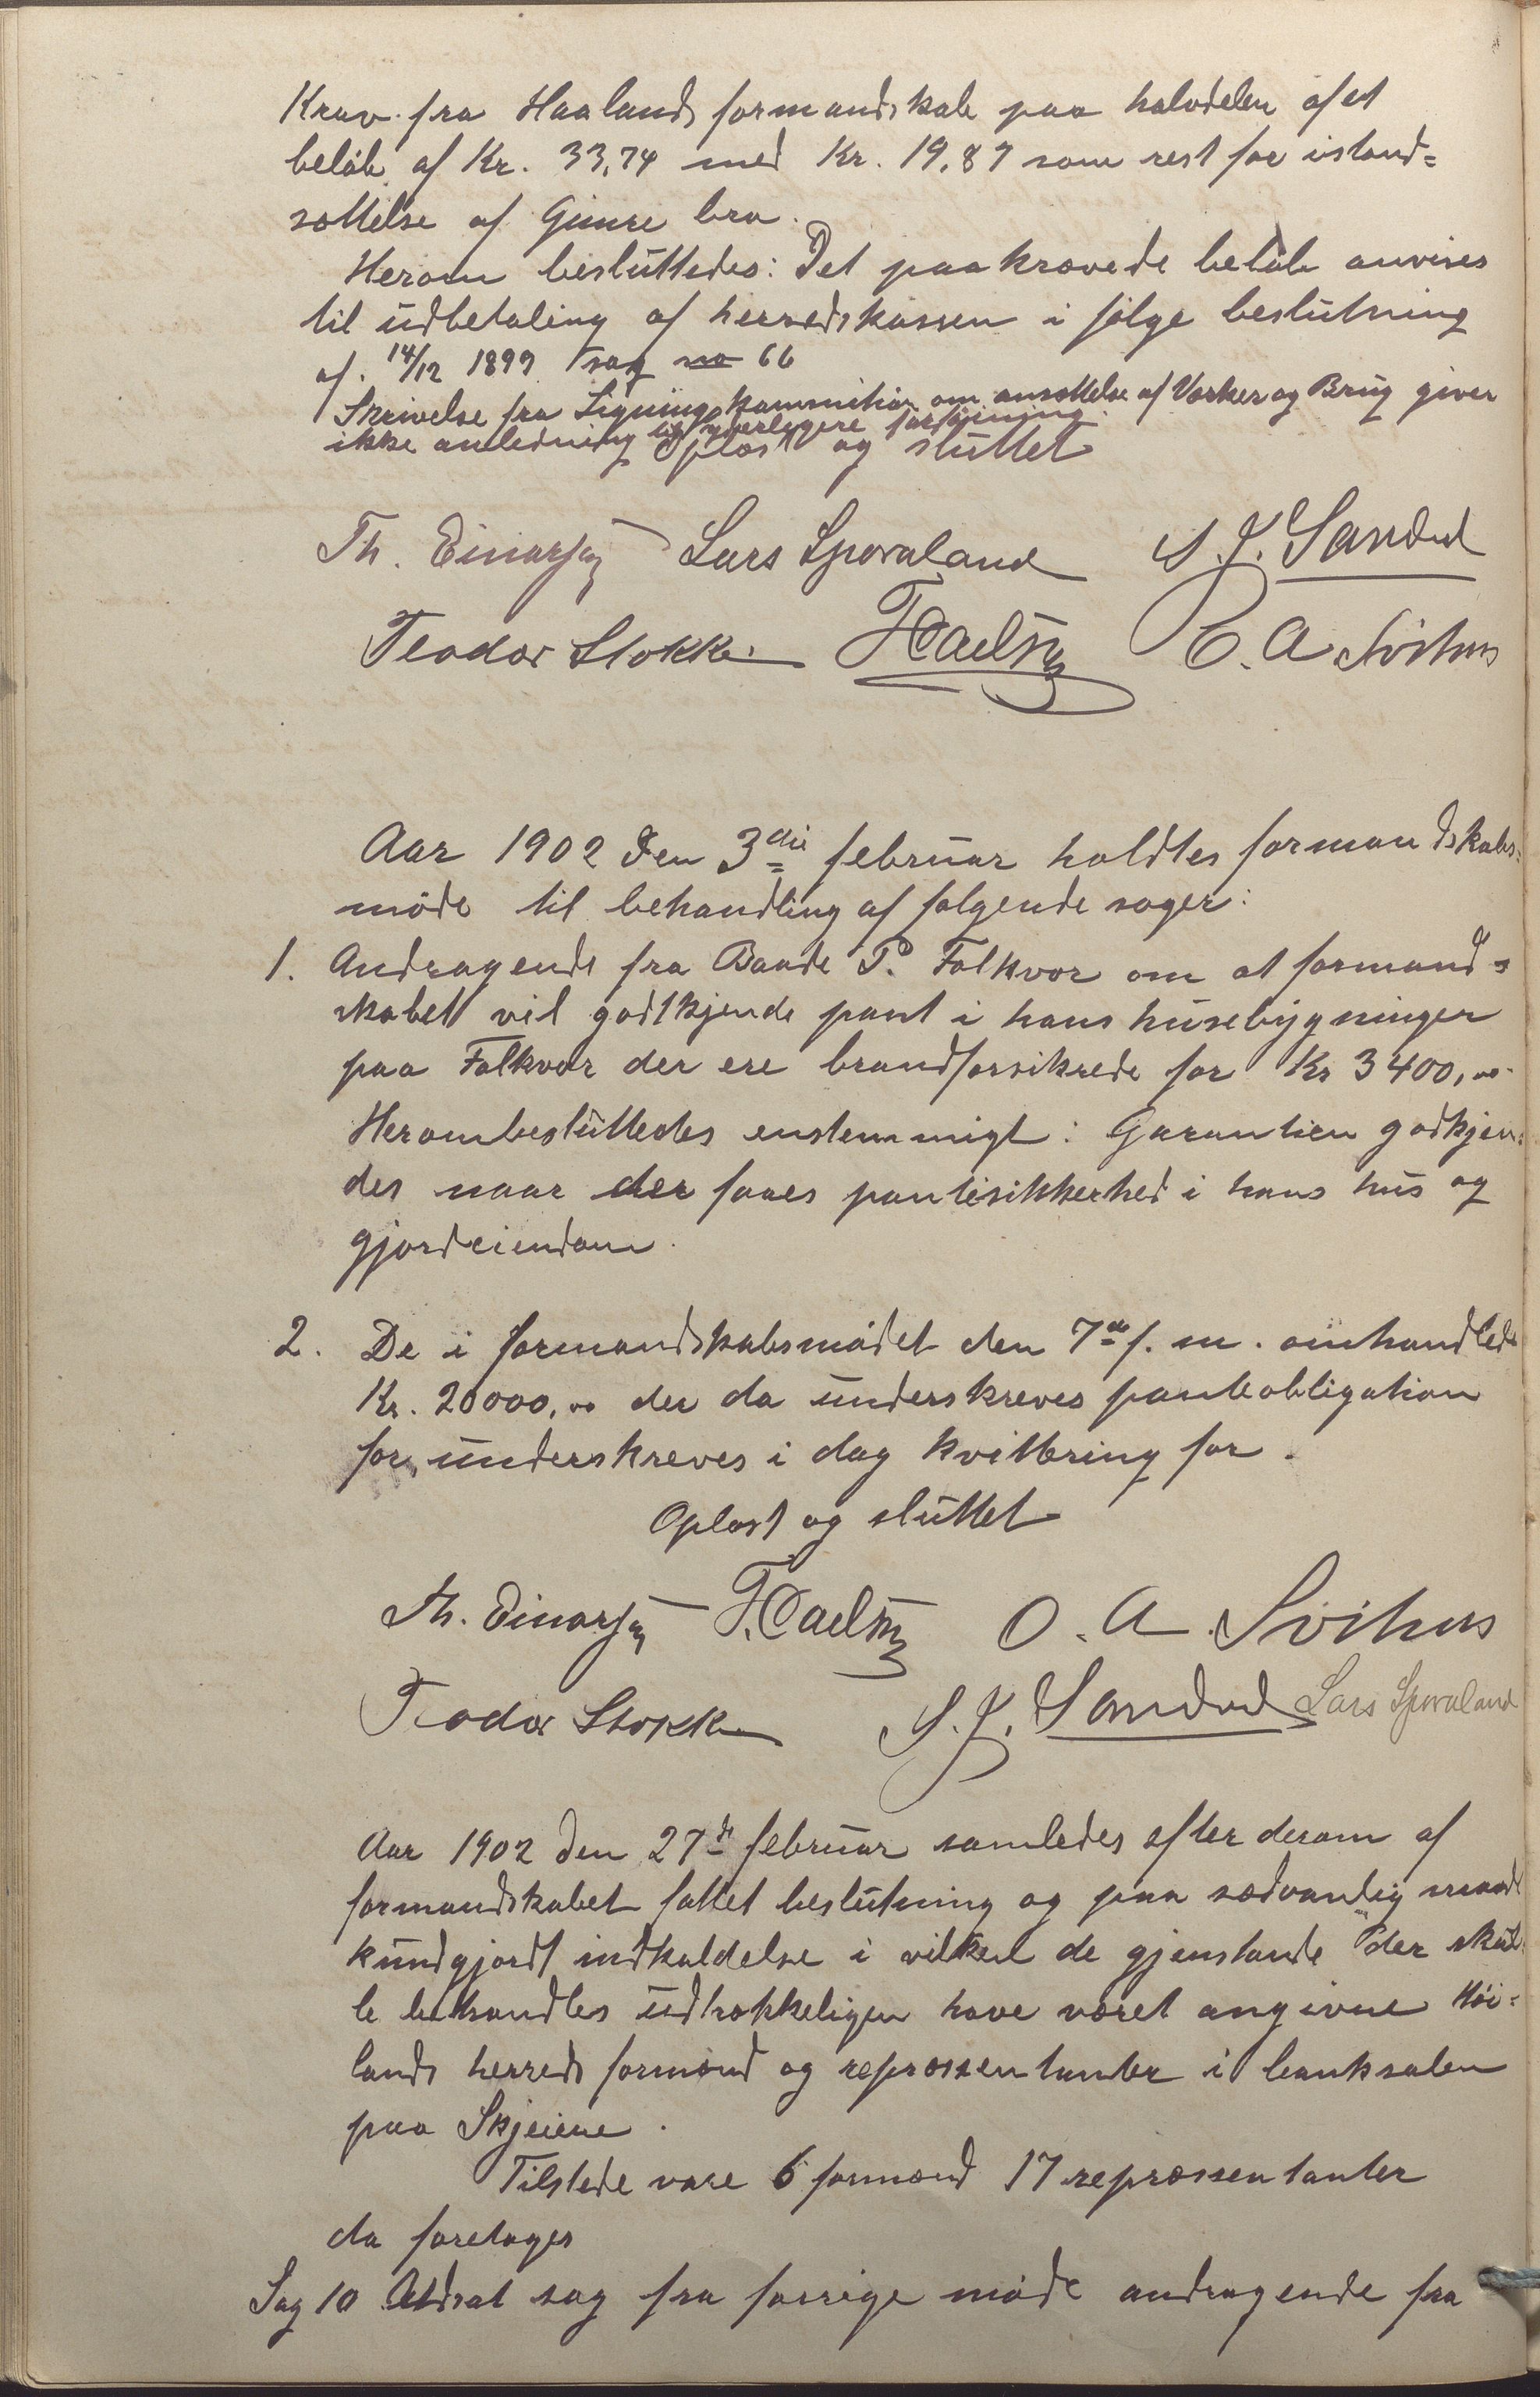 Krav fra Haalands formandskab paa halvdelen af et
beløb af Kr. 33,74 med Kr. 19,87 som rest for istand=
sættelse af Gimre bro.
Herom besluttedes: Det paakrævede beløb anvises
til udbetaling af herredskassen i følge beslutning
af 14/12 1899 sag no 66
Skrivelse fra Ligningskommition om ansættelse af Værker og Brug giver
ikke anledning til yderligere forføining.
Oplæst og sluttet
Th. Einarsen Lars Sporaland S. J. Sandved
Teodor Stokke O. A. Svihus
Aar 1902 den 3die februar holdtes formandskabs=
møde til behandling af følgende sager:
1. Andragende fra Baade P. Folkvor om at formand=
skabet vil godtkjende pant i hans husebygninger
paa Folkvor der ere brandforsikrede for Kr 3400,00.
Herombesluttedes enstemmigt: Garantien godkjen=
des naar der faaes pantesikkerhed i hans hus og
gjordeiendom.
2. De i formandskabsmødet den 7de f. m. omhandlede
Kr. 20000,00 der da underskreves panteobligation
for, underskreves i dag kvittering for.
Oplæst og sluttet
Th. Einarsen O. A. Svihus
Teodor Stokke S. J. Sandved Lars Sporaland
Aar 1902 den 27de februar samledes efter derom af
formandskabet fattet beslutning og paa sædvanlig maade
kundgjordt indkaldelse i vilken de gjenstande der skul=
le behandles udtrykkeligen have været angivne Høi=
lands herreds formænd og repræssentanter i banksalen
paa Skjeiene.
Tilstede vare 6 formænd 17 repræssentanter
da foretoges
Sag 10 Udsat sag fra forrige møde andragende fra